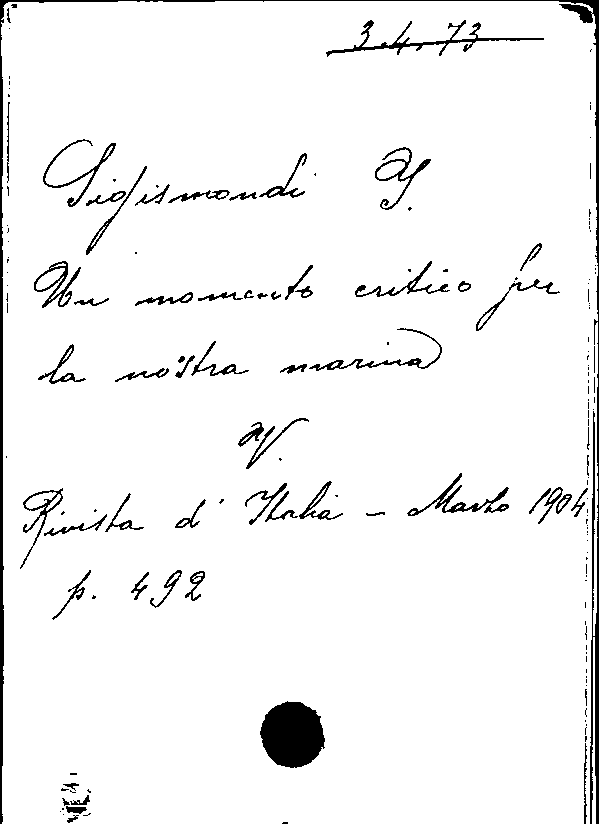 3.4.73
Sigismondi G.
Un momento critico per
la nostra marina
V.
Rivista d'Italia - Marzo 1904
p. 492